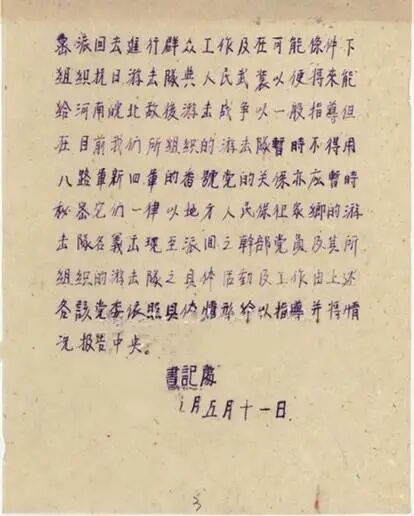 派回去進行群众工作及在可能條件下
組織抗日游击隊與人民武裝以便將來能
給河南皖北敌後游击战争以一般指導但
在目前我们所組織的游击隊暫時不得用
八路軍新四軍的番號党的关係亦应暫時
秘密它们一律以地方人民保衽家鄉的游
击隊名義出现至派回之幹部党员及其所
組織的游击隊之具体活動及工作由上述
各該党委依照具体情形給以指導并将情
况报告中央。
書記處
五月十一日
3